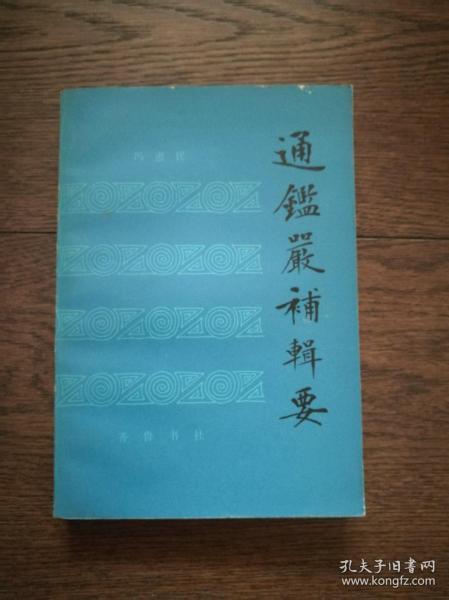 通鑑嚴補輯要
冯惠民
齐鲁书社
孔夫子旧书网
www.kongfz.com